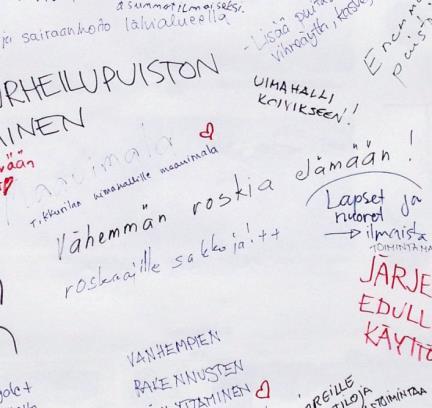 asummot ilmaiseksi.
ja sairaanhoito lähialueella
-Lisää puita,
vihreäytt,
Enemmän
puist
RHEILUPUISTON
INEN
UIMAHALLI
KOIVIKSEEN!!
vään
Maauimala
Tikkurilan uimahallille maauimala
Vähemmän roskia elämään!
roskaajille sakkoja!++
Lapset ja
nuoret
→ ilmaista
TOIMINTAA
JÄRJE
EDULL
KÄYTTÖ
VANHEMPIEN
RAKENNUSTEN
TTAMINEN
OREILLE
TILOJA
TOIMINTAA